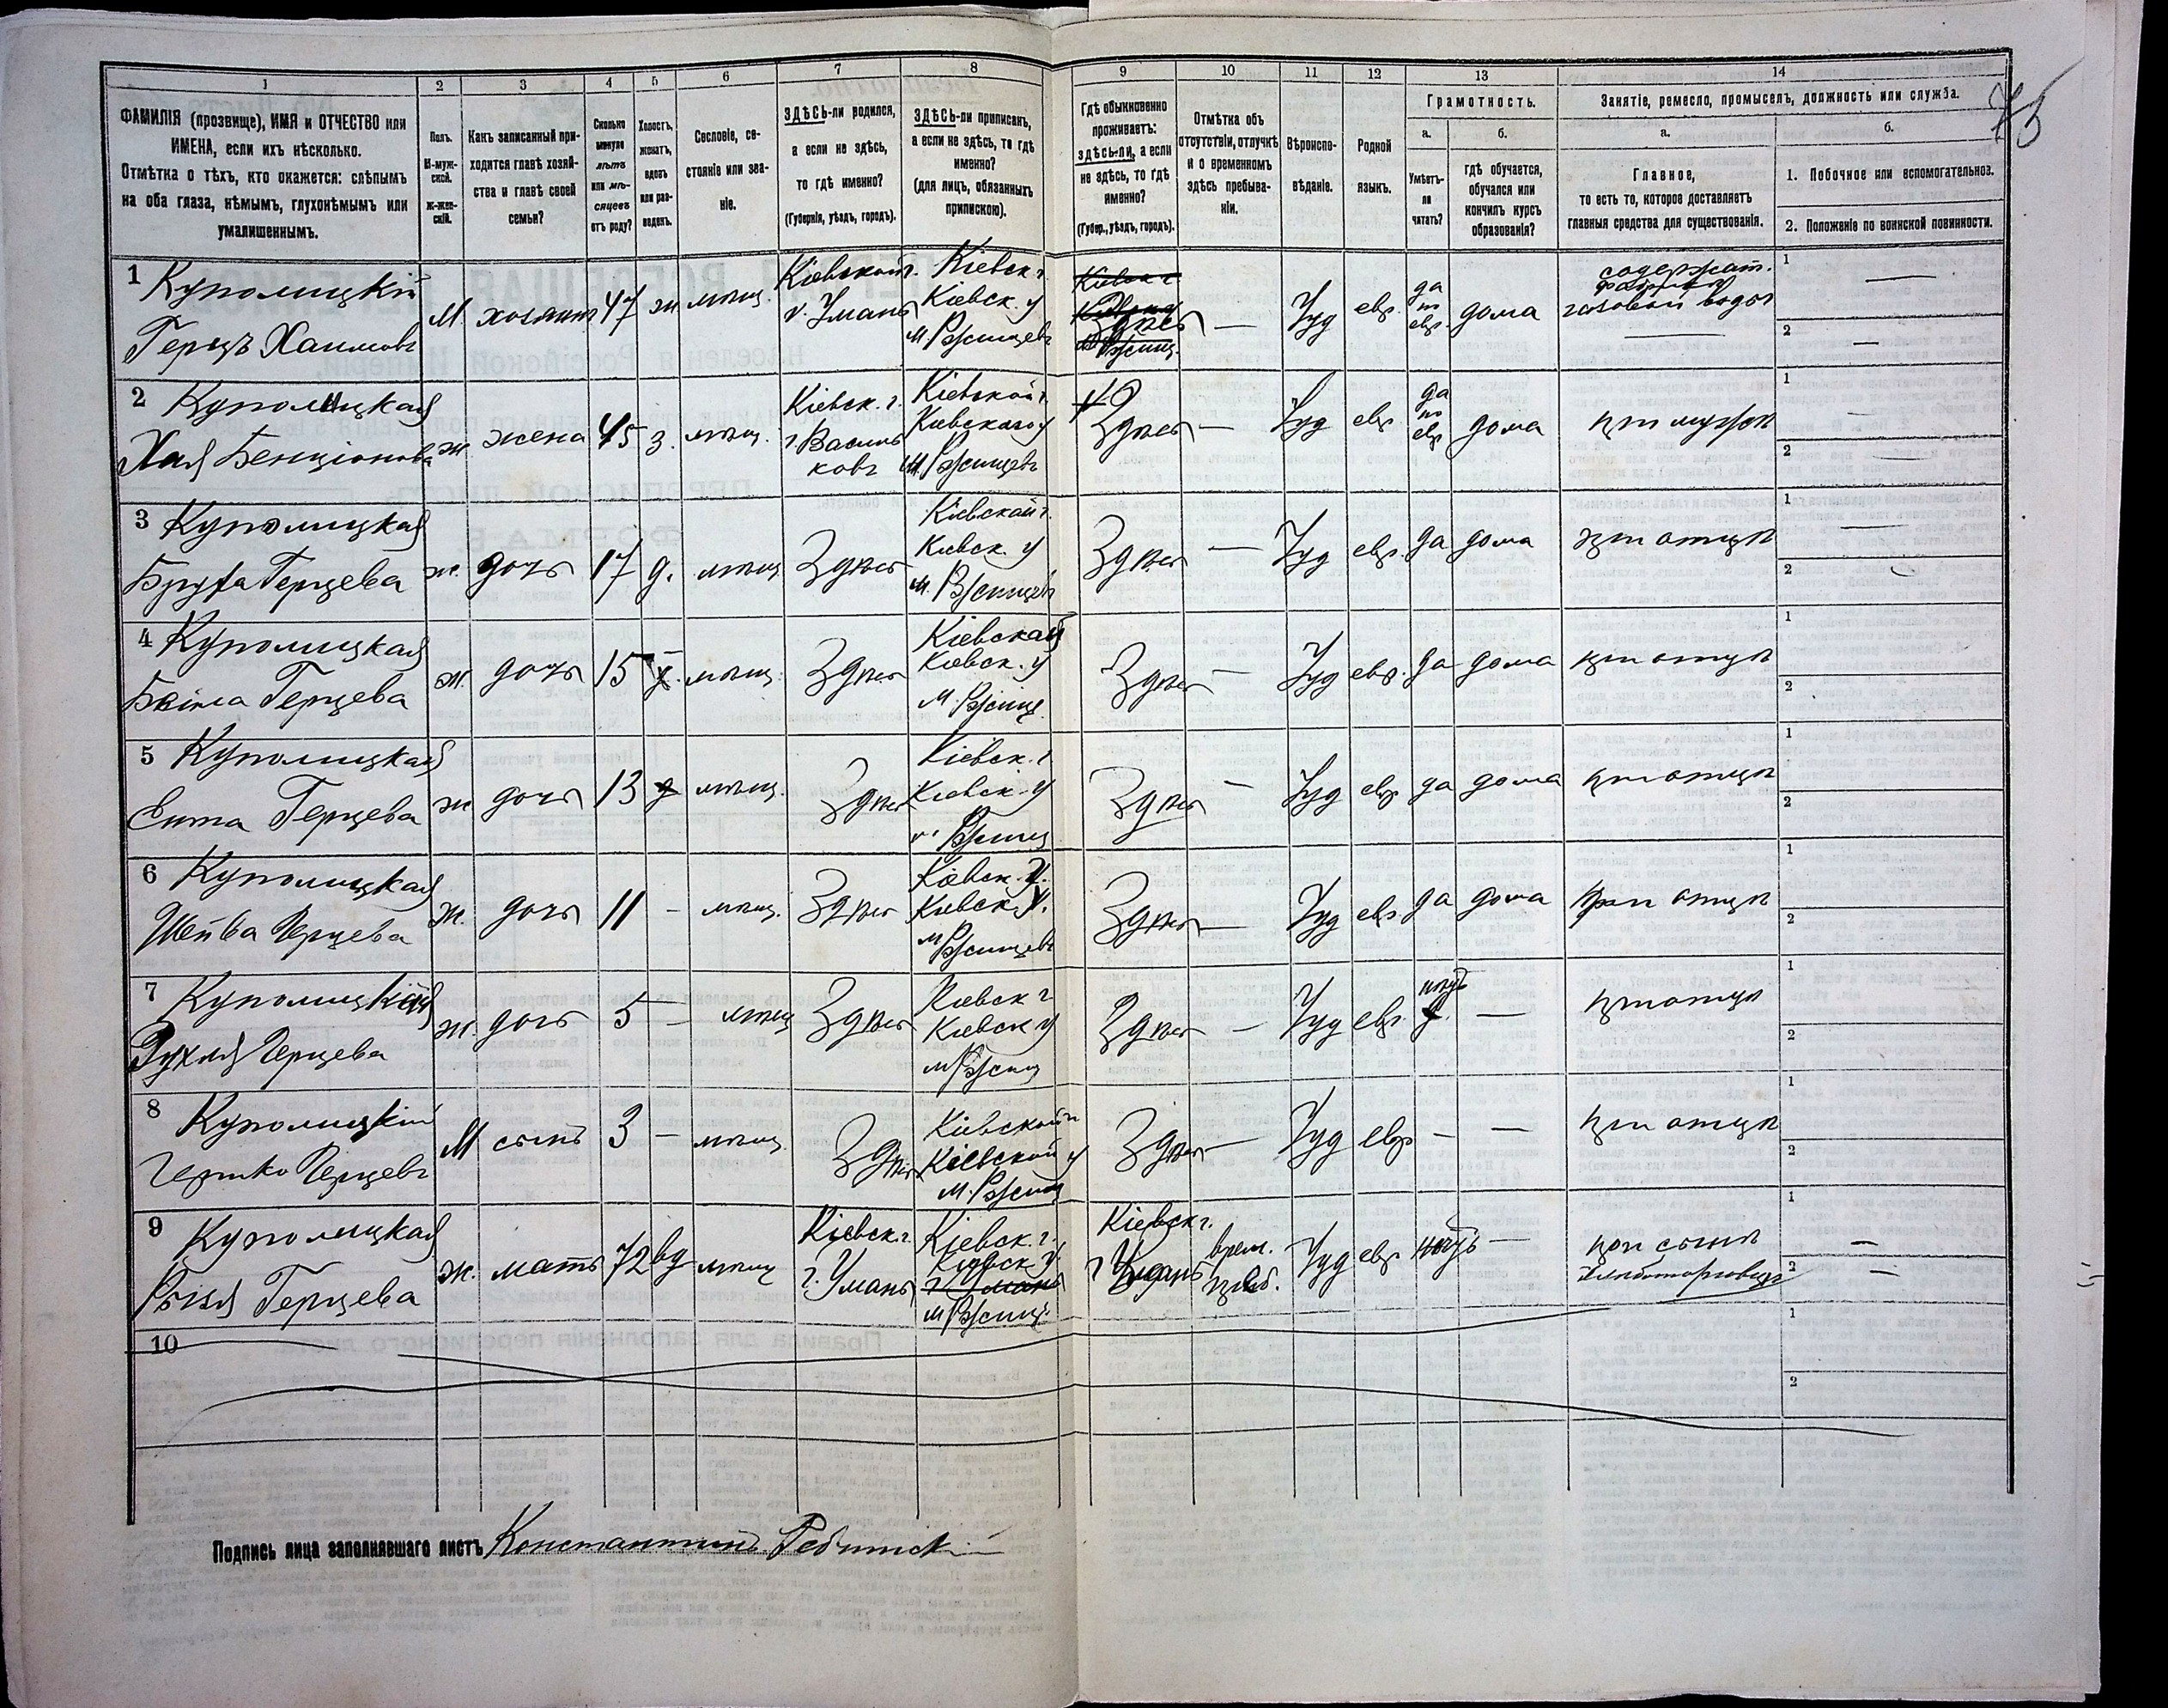 1 2 3 4 5 6 7 8 9 10 11 12 13 14
ФАМИЛІЯ (прозвище), ИМЯ и ОТЧЕСТВО или
ИМЕНА, если ихъ нѣсколько.
Отмѣтка о тѣхъ, кто окажется: слѣпымъ
на оба глаза, нѣмымъ, глухонѣмымъ или
умалишеннымъ.
Полъ.
М-муж-
ской.
Ж-жен-
скій.
Какъ записанный при-
ходится главѣ хозяй-
ства и главѣ своей
семьи?
Сколько
минуло
лѣтъ
или мѣ-
сяцевъ
отъ роду?
Холостъ,
женатъ,
вдовъ
или раз-
веденъ.
Сословіе, со-
стояніе или зва-
ніе.
ЗДѢСЬ-ли родился,
а если не здѣсь,
то гдѣ именно?
(Губернія, уѣздъ, городъ).
ЗДѢСЬ-ли приписанъ,
а если не здѣсь, то гдѣ
именно?
(для лицъ, обязанныхъ
припискою).
Гдѣ обыкновенно
проживаетъ:
здѣсь-ли, а если
не здѣсь, то гдѣ
именно?
(Губер., уѣздъ, городъ).
Отмѣтка объ
отсутствіи, отлучкѣ
и о временномъ
здѣсь пребыва-
ніи.
Вѣроиспо-
вѣданіе.
Родной
языкъ.
Грамотность.
а.
Умѣетъ-
ли
читать?
б.
гдѣ обучается,
обучался или
кончилъ курсъ
образованія?
Занятіе, ремесло, промыселъ, должность или служба.
а.
Главное,
то есть то, которое доставляетъ
главныя средства для существованія.
б.
1. Побочное или вспомогательное.
2. Положеніе по воинской повинности.
1 Куполицкій
Герцъ Хаимовъ
М. хозяинъ 47 ж мѣщ.
Кіевской г.
г. Умань
Кіевск. г.
Кіевск. у
м. Ржищевъ
Здѣсь — Іуд евр.
да
по
евр.
дома
содержат.
газовой воды
1 —
2 —
2 Куполицкая
Хая Бенціонова
ж жена 45 з. мѣщ.
Кіевск. г.
г. Василь
ковъ
Кіевской г.
Кіевскаго у
м. Ржищевъ
Здѣсь — Іуд евр.
да
по
евр
дома при мужѣ
1 —
2 —
3 Куполицкая
Герцева
ж. дочь 17 д. мѣщ Здѣсь
Кіевской г.
Кіевск. у
м. Ржищевъ
Здѣсь — Іуд евр. да дома при отцѣ
1 —
2 —
4 Куполицкая
Герцева
ж. дочь 15 мѣщ. Здѣсь
Кіевск. у
м. Ржищ.
Здѣсь — Іуд евр. да дома при отцѣ
1
2
5 Куполицкая
Ента Герцева
ж дочь 13 мѣщ. Здѣсь
Кіевск. г
Кіевск. у
м. Ржищ
Здѣсь — Іуд евр да дома при отцѣ
1
2
6 Куполицкая
Шейва Герцева
ж. дочь 11 — мѣщ. Здѣсь
Кіевск. г.
Кіевск. у.
м Ржищевъ
Здѣсь — Іуд евр да дома при отцѣ
1
2
7 Куполицкая
Рухля Герцева
ж. дочь 5 — мѣщ Здѣсь
Кіевск г
Кіевск у
м Ржищ
Здѣсь — Іуд евр. нѣтъ — при отцѣ
1
2
8 Куполицкій
Герцевъ
М сынъ 3 — мѣщ. Здѣсь
Кіевской г
Кіевской у
м. Ржищ
Здѣсь — Іуд евр — — при отцѣ
1
2
9 Куполицкая
Герцева
ж. мать 72 вд мѣщ
Кіевск. г.
г. Умань
Кіевск. г.
Кіевск. у
г. Умань
м Ржищ.
Кіевск г.
г Умань
врем.
преб.
Іуд евр нѣтъ —
при сынѣ
1 —
2 —
10
1
2
Подпись лица заполнявшаго листъ Константинъ